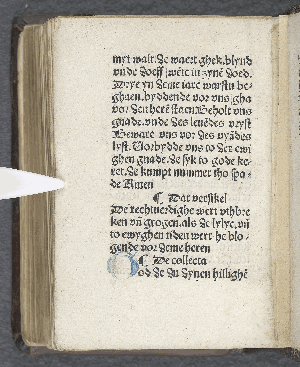 myt walt. de waert ghek. blynd
vnde doeff .
yn deme iare warstu be-
ghaen. byddende vor vns gha
vor den herē staen Beholt vns
gnade. vnde des leuēdes vryst
Beware vns vor des vyādes
lyst. Vorbydde vns to der ewi
ghen gnade. de syk to gode ke-
ret. de kumpt nummer tho spa-
de Amen
¶ Dat versikel
De rechtuerdighe wert vthbre
ken vn̄ grogen. als de lylye. vn̄
to ewyghen tiden wert he blo-
gende vor deme heren
¶ De collecta
od de du dynen hillighē